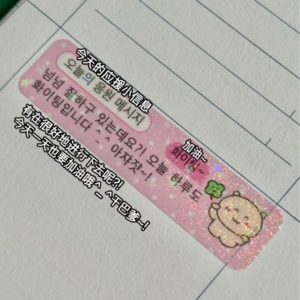 今天的应援小信息
오늘의 응원 메시지
넘넘 잘하구 있는데요?! 오늘 하루도
화이팅입니다 ^ ^ 아자잣~!
加油~
화이팅~
有在很好地进行下去呢?!
今天一天也要加油哦^_^干巴爹~!